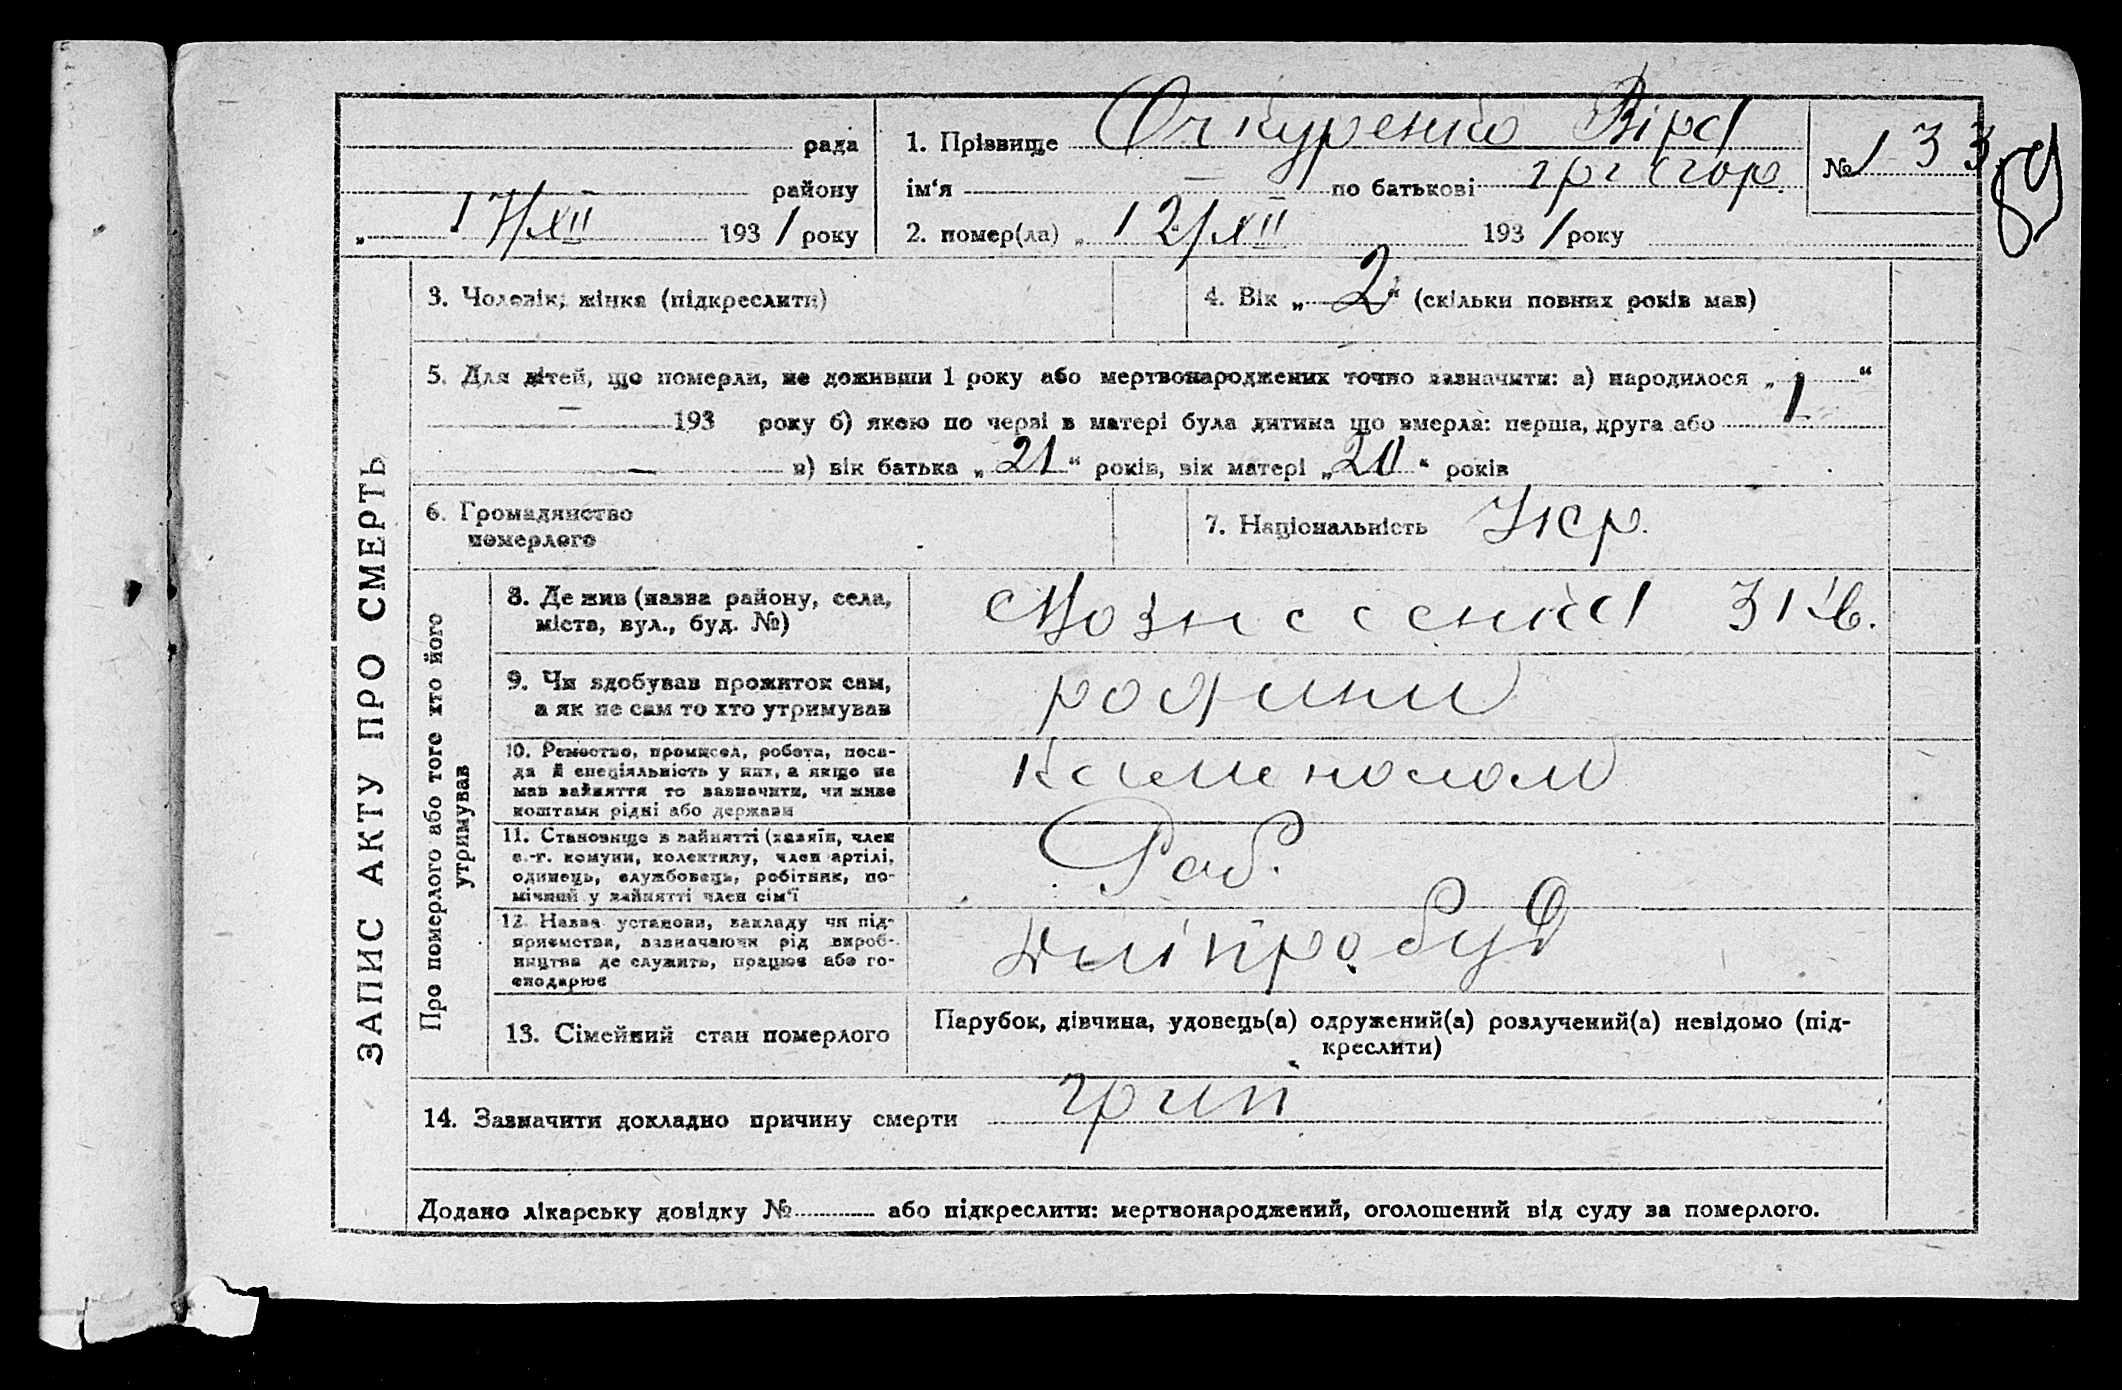 рада
району
„ 17/XII 1931 року
1. Прізвище Очкуренко Віра
ім‘я — по батькові Григор.
2. помер(ла) „ 12/XII 1931 року
№ 133
89
ЗАПИС АКТУ ПРО СМЕРТЬ
3. Чоловік, жінка (підкреслити)
4. Вік „ 2 “ (скільки повних років мав)
5. Для дітей, що померли, не доживши 1 року або мертвонароджених точно зазначити: а) народилося „ “
— 193 року б) якою по черзі в матері була дитина що вмерла: перша, друга або 1
— в) вік батька „ 21 “ років, вік матері „ 20 “ років
6. Громадянство
померлого
7. Національність Укр.
Про померлого або того хто його
утримував
8. Де жив (назва району, села,
міста, вул., буд. №)
Вознесенка
9. Чи здобував прожиток сам,
а як не сам то хто утримував
родини
10. Ремество, промисел, робота, поса-
да й спеціяльність у них, а якщо не
мав зайняття то зазначити, чи живе
коштами рідні або держави
каменолом
11. Становище в зайнятті (хазяїн, член
с.-г. комуни, колективу, член артілі,
одинець, службовець, робітник, по-
мічний у зайнятті член сім‘ї
Роб.
12. Назва установи, закладу чи під-
приємства, зазначаючи рід вироб-
ництва де служить, працює або го-
сподарює
Дніпробуд
13. Сімейний стан померлого
Парубок, дівчина, удовець(а) одружений(а) розлучений(а) невідомо (під-
креслити)
14. Зазначити докладно причину смерти грип
Додано лікарську довідку № або підкреслити: мертвонароджений, оголошений від суду за померлого.